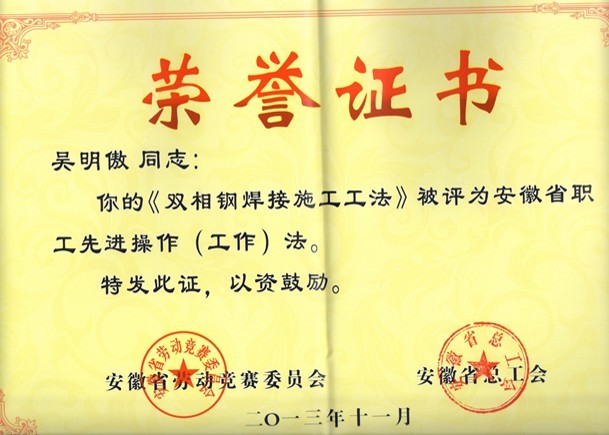 荣誉证书
吴明傲 同志：
你的《双相钢焊接施工工法》被评为安徽省职
工先进操作（工作）法。
特发此证，以资鼓励。
安徽省劳动竞赛委员会
安徽省总工会
安徽省劳动竞赛委员会
安徽省总工会
二〇一三年十一月